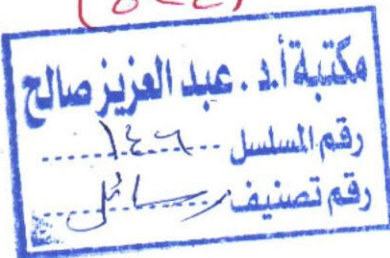 مكتبة أ.د. عبد العزيز صالح
رقم المسلسل ١٤٦
رقم تصنيف رسائل